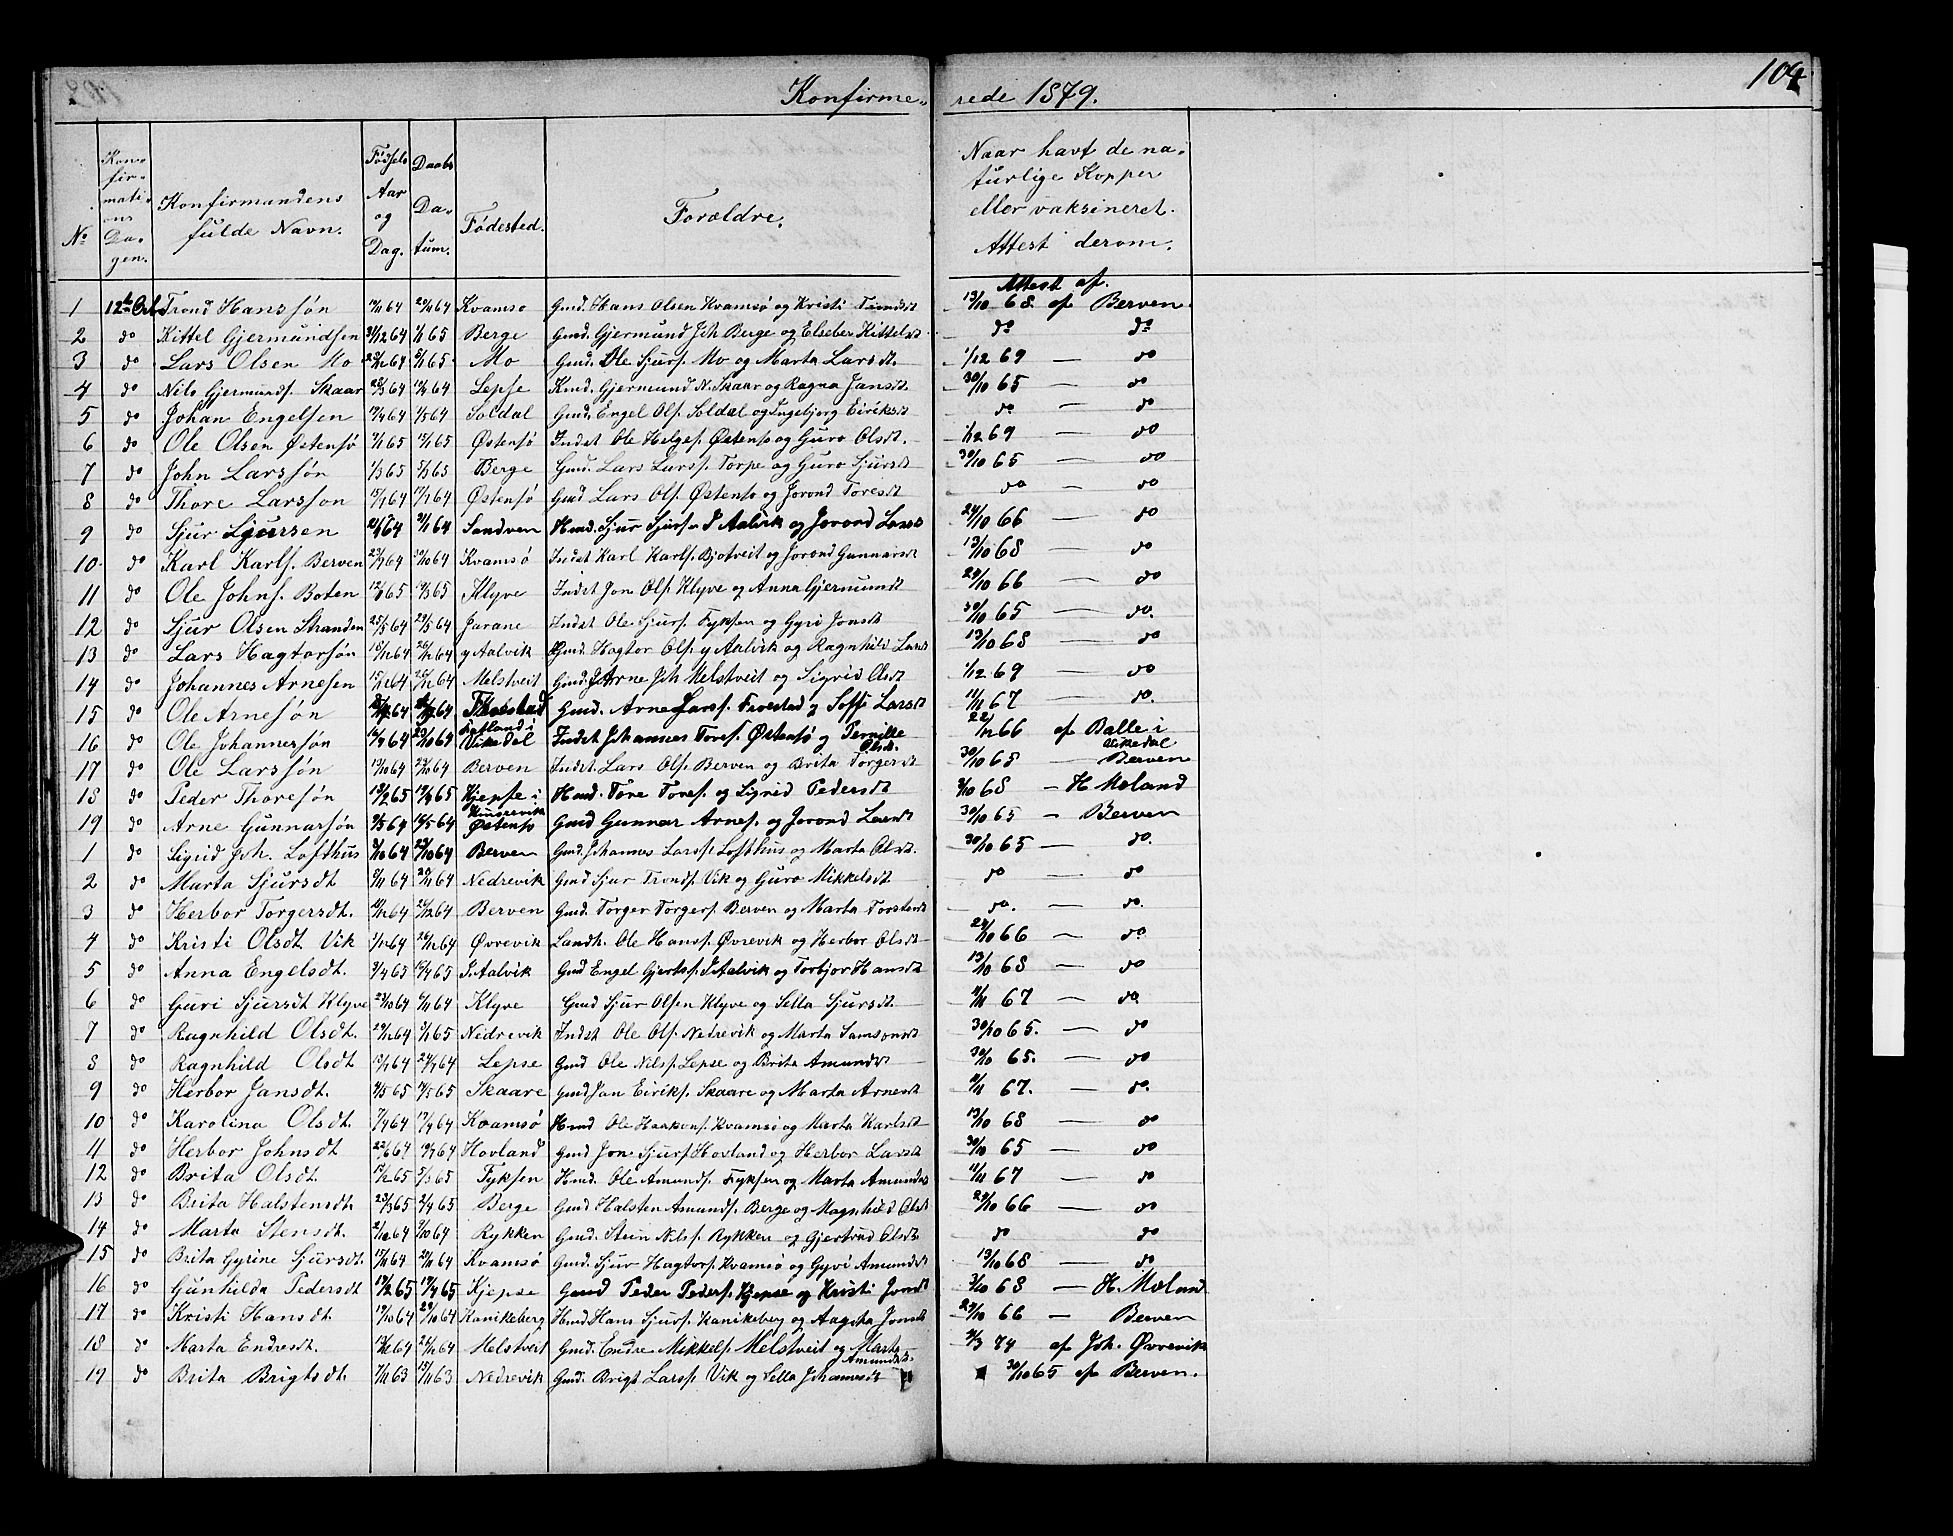 104
Konfirme- rede 1879.
No Konfirmationsdagen. Konfirmandens fulde Navn. Fødsels Aar og Dag. Daabs Datum. Fødested. Forældre. Naar havt de naturlige Kopper eller vaksineret. Attest derom.
Attest af.
1 12te Oct. Trond Hanssøn 64 64 Kvamsø Gmd. Hans Olsen Kvamsø og Kristi 13/10 68 af Berven
2 do Kittel Gjermundsen 31/12 64 1/1 65 Berge Gmd. Gjermund Joh Berge og Elseber Kittelsdt do do
3 do Lars Olsen Mo 64 65 Mo Gmd. Ole Sjurs. Mo og Marta Larsdt 1/12 69 — do
4 do Nils Gjermunds. Skaar 64 64 Lepse Kmd. Gjermund N. Skaar og Ragna Jansdt 30/10 65 — do
5 do Johan Engelsen 64 64 Soldal Gmd. Engel Ols. Soldal og Ingebjorg Eiriksdt do — do
6 do Ole Olsen Østensø 65 65 Østensø Indst Ole Helges. Østensø og Guro Olsdt. 1/12 69 — do
7 do John Larssøn 65 65 Berge Gmd. Lars Larss. Torpe og Guro Sjursdt 30/10 65 — do
8 do Thore Larsson 64 64 Østensø Gmd Lars Ols. Østensø og Jorond Toresdt do — do
9 do Sjur Sjursen 64 64 Sandven Hmd. Sjur Sjurs. I Aalvik og Jorond Larsdt 24/10 66 — do
10 do Karl Karls. Berven 64 64 Kvamsø Indst Karl Karls. Bjotveit og Jorond Gunnarsdt 13/10 68 — do
11 do Ole Johns. Boten 65 65 Klyve Indst Jon Ols. Klyve og Anna Gjermundsdt 24/10 66 — do
12 do Sjur Olsen Stranden 25/5 64 29/5 64 Jarane Indst Ole Sjurs. Fyksen og Gyri Jonsdt 30/10 65 — do.
13 do Lars Hagtorsøn 64 64 y Aalvik Gmd. Hagtor Ols. y Aalvik og Ragnhild Larsdt 13/10 68 — do
14 do Johannes Arnesen 64 64 Melstveit Gmd. Arne Joh Melstveit og Sigrid Olsdt 1/12 69 — do
15 do Ole Arnesøn 64 64 Gmd. Arne Larss. og Larsdt 11/11 67 — do.
16 do Ole Johannessøn 64 64 i Vikedal Indst Johannes Tores. Østensø og Pernille Olsdt. 66 af Balle i Vikedal
17 do Ole Larssøn 64 64 Berven Indst. Lars Ols. Berven og Brita Torgersdt 30/10 65 — Berven
18 do Peder Thoresøn 65 65 Kjepse i Kinservik Hmd. Tore Tores. og Sigrid Pedersdt 3/10 68 — H. Moland
19 do Arne Gunnarsøn 64 64 Østensø Gmd Gunnar Arnes. og Jorond Larsdt 30/10 65 — Berven
1 do Sigrid Joh. Lofthus 64 64 Berven Gmd. Johannes Larss. Lofthus og Marta Olsdt. 30/10 65 — do.
2 do Marta Sjursdt 64 64 Nedrevik Gmd Sjur Tronds. Vik og Guro Mikkelsdt do — do
3 do Herbor Torgersdt. 64 64 Berven Gmd. Torger Torgers. Berven og Marta Torstensdt do. — do.
4 do Kristi Olsdt Vik 64 64 Øvrevik Landh. Ole Hanss. Øvrevik og Herbor Olsdt 24/10 66 — do.
5 do Anna Engelsdt. 65 65 I. Aalvik Gmd Engel Gjertss. I Aalvik og Torbjor Hansdt 13/10 68 — do
6 do Guri Sjursdt Klyve 64 64 Klyve Gmd Sjur Olsen Klyve og Sella Sjursdt. 11/11 67 — do.
7 do Ragnhild Olsdt. 64 65 Nedrevik Indst Ole Ols. Nedrevik og Marta Samsonsdt 30/10 65. — do
8 do Ragnhild Olsdt 64 64 Lepse Gmd Ole Nilss. Lepse og Brita Amundsdt 30/10 65. — do
9 do Herbor Jansdt. 65 65 Skaare Gmd Jan Eiriks. Skaare og Marta Arnesdt 11/11 67. — do.
10 do Karolina Olsdt. 64 64 Kvamsø Hmd Ole Haakons. Kvamsø og Marta Karlsdt 13/10 68 — do
11 do Herbor Johnsdt 64 64 Hovland Gmd Jon Sjurs. Hovland og Herbor Larsdt 30/10 65 — do
12 do Brita Olsdt. 65 65 Fyksen Hmd. Ole Amunds. Fyksen og Marta Amundsdt 11/11 67 — do
13 do Brita Halstensdt. 65 65 Berge Gmd Halsten Amunds. Berge og Magnhild Olsdt 24/10 66 — do
14 do Marta Stensdt. 64 64 Rykken Gmd. Stein Nilss. Rykken og Gjertrud Olsdt do do
15 do Brita Gyrine Sjursdt. 64 64 Kvamsø Gmd. Sjur Hagtors. Kvamsø og Gyri Amundsdt 13/10 68 — do
16 do Gunhilda Pedersdt 65 65 Kjepse Gmd Peder Peders. Kjepse og Kristi Jonsdt 3/10 68 — H. Moland
17 do Kristi Hansdt. 64 64 Kanikeberg Hmd Hans Sjurs. Kanikeberg og Aagata Jonsdt 24/10 66 — Berven
18 do Marta Endresdt. 64 64 Melstveit Gmd. Endre Mikkels. Melstveit og Marta Amundsdt. 74 af Joh. Øvrevik
19 do Brita Brigtsdt. 63 63 Nedrevik Gmd. Brigt Larss. Vik og Sella Johannesdt 30/10 65 af Berven.